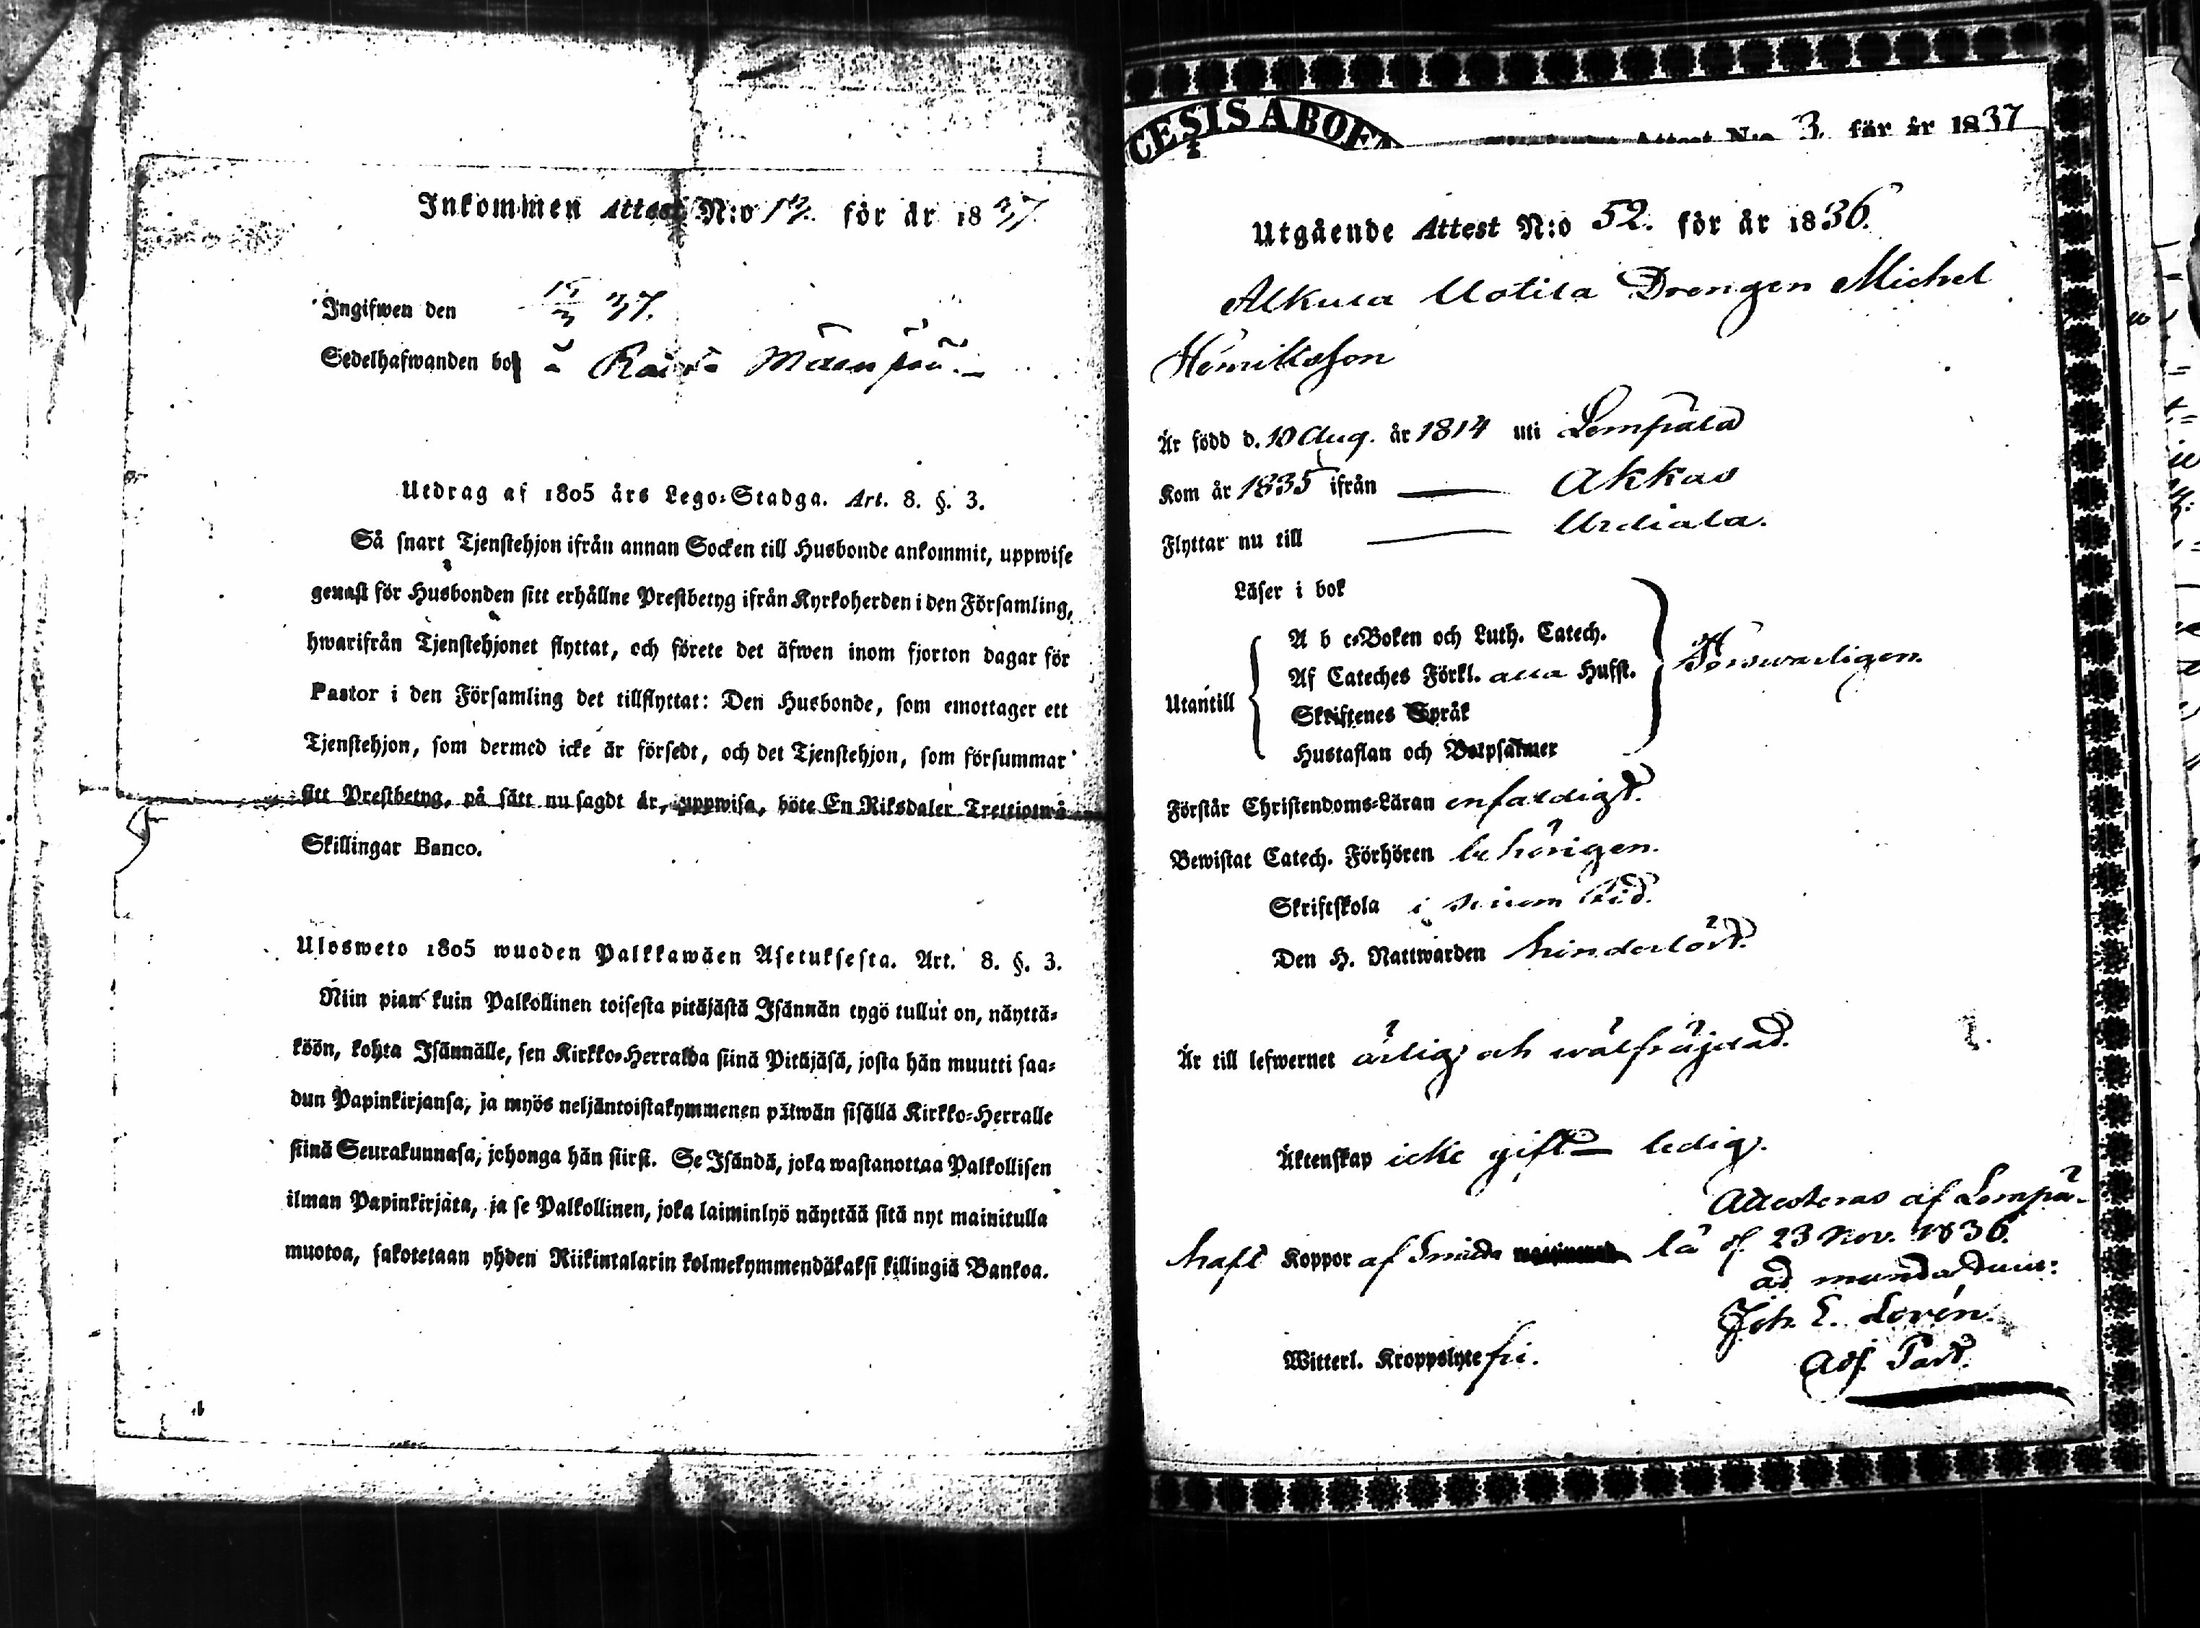 Inkommen Attest N:o för år 1837
Ingifwen den 37.
Sedelhafwanden bor å
Utdrag af 1805 års Lego-Stadga. Art. 8. §. 3.
Så snart Tjenstehjon ifrån annan Socken till Husbonde ankommit, uppwise
genast för Husbonden sitt erhållne Prestbetyg ifrån Kyrkoherden i den Församling,
hwarifrån Tjenstehjonet flyttat, och förete det äfwen inom fjorton dagar för
Pastor i den Församling det tillflyttat: Den Husbonde, som emottager ett
Tjenstehjon, som dermed icke är försedt, och det Tjenstehjon, som försummar
sitt Prestbetyg, på sätt nu sagdt är, uppwisa, böte En Riksdaler Trettiotwå
Skillingar Banco.
Ulosweto 1805 wuoden Palkkawäen Asetuksesta. Art. 8. §. 3.
Niin pian kuin Palkollinen toisesta pitäjästä Isännän tygö tullut on, näyttä-
köön, kohta Isännälle, sen Kirkko-Herralda siinä Pitäjäsä, josta hän muutti saa-
dun Papinkirjansa, ja myös neljäntoistakymmenen päiwän sisällä Kirkko-Herralle
siinä Seurakunnasa, johonga hän siirst. Se Isändä, joka wastanottaa Palkollisen
ilman Papinkirjata, ja se Palkollinen, joka laiminlyö näyttää sitä nyt mainitulla
muotoa, sakotetaan yhden Riikintalarin kolmekymmendäkaksi killingiä Bankoa.
CESIS ABOE
Attest N:o 3 för år 1837
Utgående Attest N:o 52. för år 1836.
Alkula Uotila Drengen Michel
Henriksson
Är född d. 10 Aug. år 1814 uti Lempälä
Kom år 1835 ifrån — Akkas
Flyttar nu till — Urdiala.
Läser i bok
A b c-Boken och Luth. Catech.
Af Cateches Förkl. alla Hufst. Försvarligen.
Utantill
Skriftenes Språk
Hustaflan och Botpsalmer
Förstår Christendoms-Läran enfaldigt.
Bewistat Catech. Förhören behörigen.
Skriftskola i sinom tid.
Den H. Nattwarden hinderlöst.
Är till lefwernet ärlig och wälfräjdad.
Äktenskap icke gift — ledig.
Attesteras af Lempä-
haft Koppor af Smitta lä d. 23 Nov. 1836.
ad mundandum:
Joh. E. Lorén.
Witterl. Kroppslyte fri.
Adj. Past.